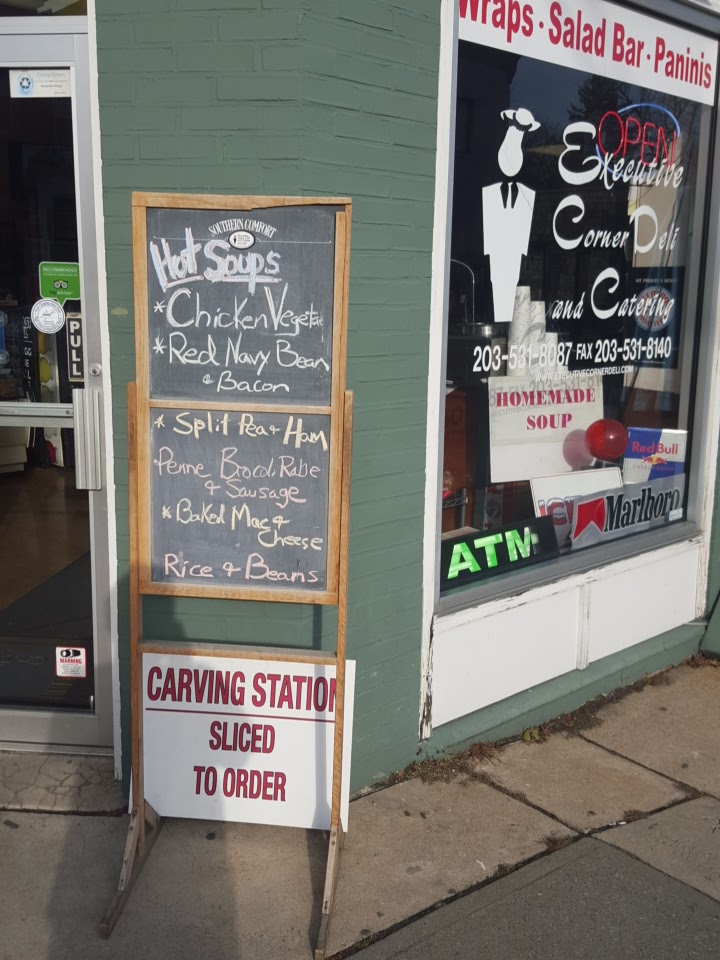 Wraps · Salad Bar · Paninis
OPEN
Executive
Corner Deli
and Catering
203-531-8087 FAX 203-531-8140
WWW.EXECUTIVECORNERDELI.COM
HOMEMADE
SOUP
Red Bull
Marlboro
ATM
PULL
WARNING
SOUTHERN COMFORT
Hot Soups
* Chicken Vegetable
* Red Navy Bean
& Bacon
* Split Pea & Ham
Penne Brocoli Rabe
& Sausage
* Baked Mac &
Cheese
Rice & Beans
CARVING STATION
SLICED
TO ORDER